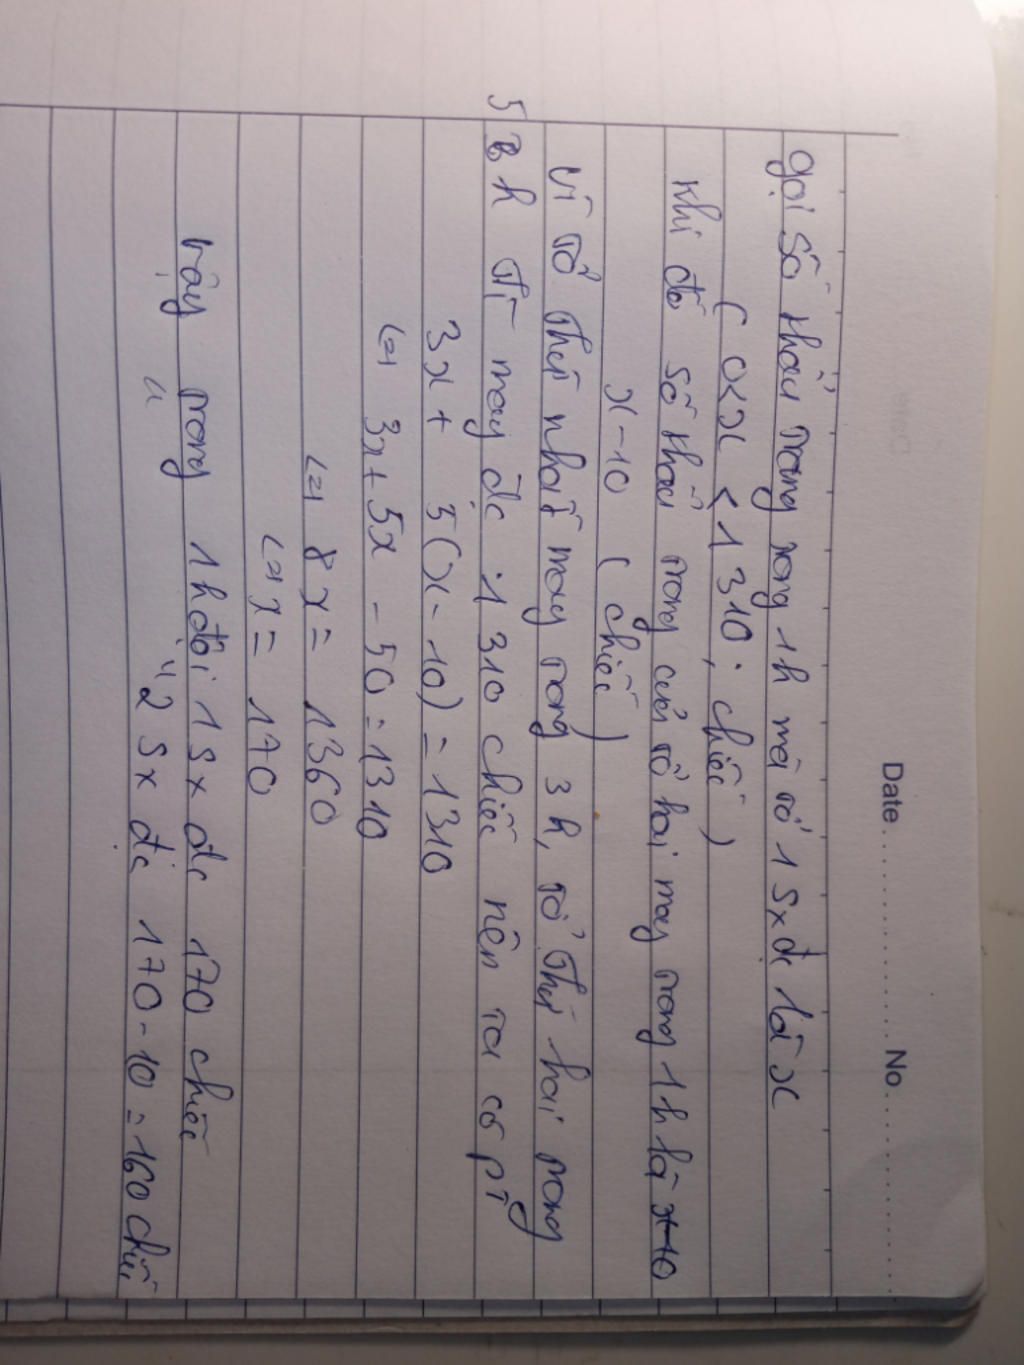 Date ............ No. ............
gọi số khẩu trang trong 1h mà tổ 1 sx đc là x
( 0<x < 1 310 ; chiếc )
khi đó số khẩu trang của tổ hai may trong 1h là x-10
x-10 ( chiếc )
vì tổ thứ nhất may trong 3 h, tổ thứ hai trong
5 h thì may đc 1 310 chiếc nên ta có pt
3x + 5(x-10) = 1310
<=> 3x + 5x - 50 = 1310
<=> 8x = 1360
<=> x = 170
vậy trong 1h đội 1 sx đc 170 chiếc
" " 2 sx đc 170 - 10 = 160 chiếc